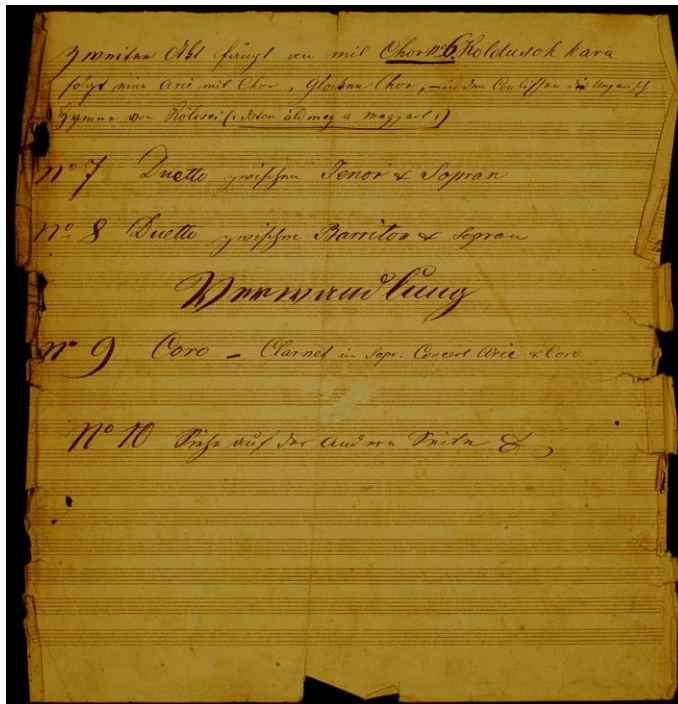 Zweiter Akt fängt an mit Chor No 6 Koldusok kara
folgt eine Arie mit Chor, Glocken Chor, – in den Coulissen die Ungarisch
Hymne von Kölcsei (: Isten áld meg a magyart :)
No 7 Duetto zwischen Tenor & Sopran
No 8 Duetto zwischen Bariton & Sopran
Verwandlung
No 9 Coro – Clarnet in Sopr: Concert Arie & Coro
No 10 Siehe auf der andern Seite